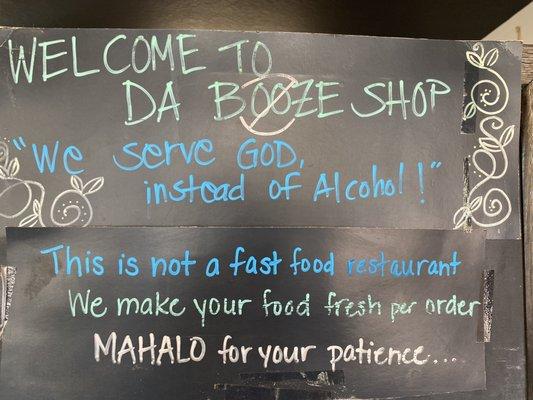 WELCOME TO
DA BOOZE SHOP
"We serve GOD,
instead of Alcohol!"
This is not a fast food restaurant
We make your food fresh per order
MAHALO for your patience...